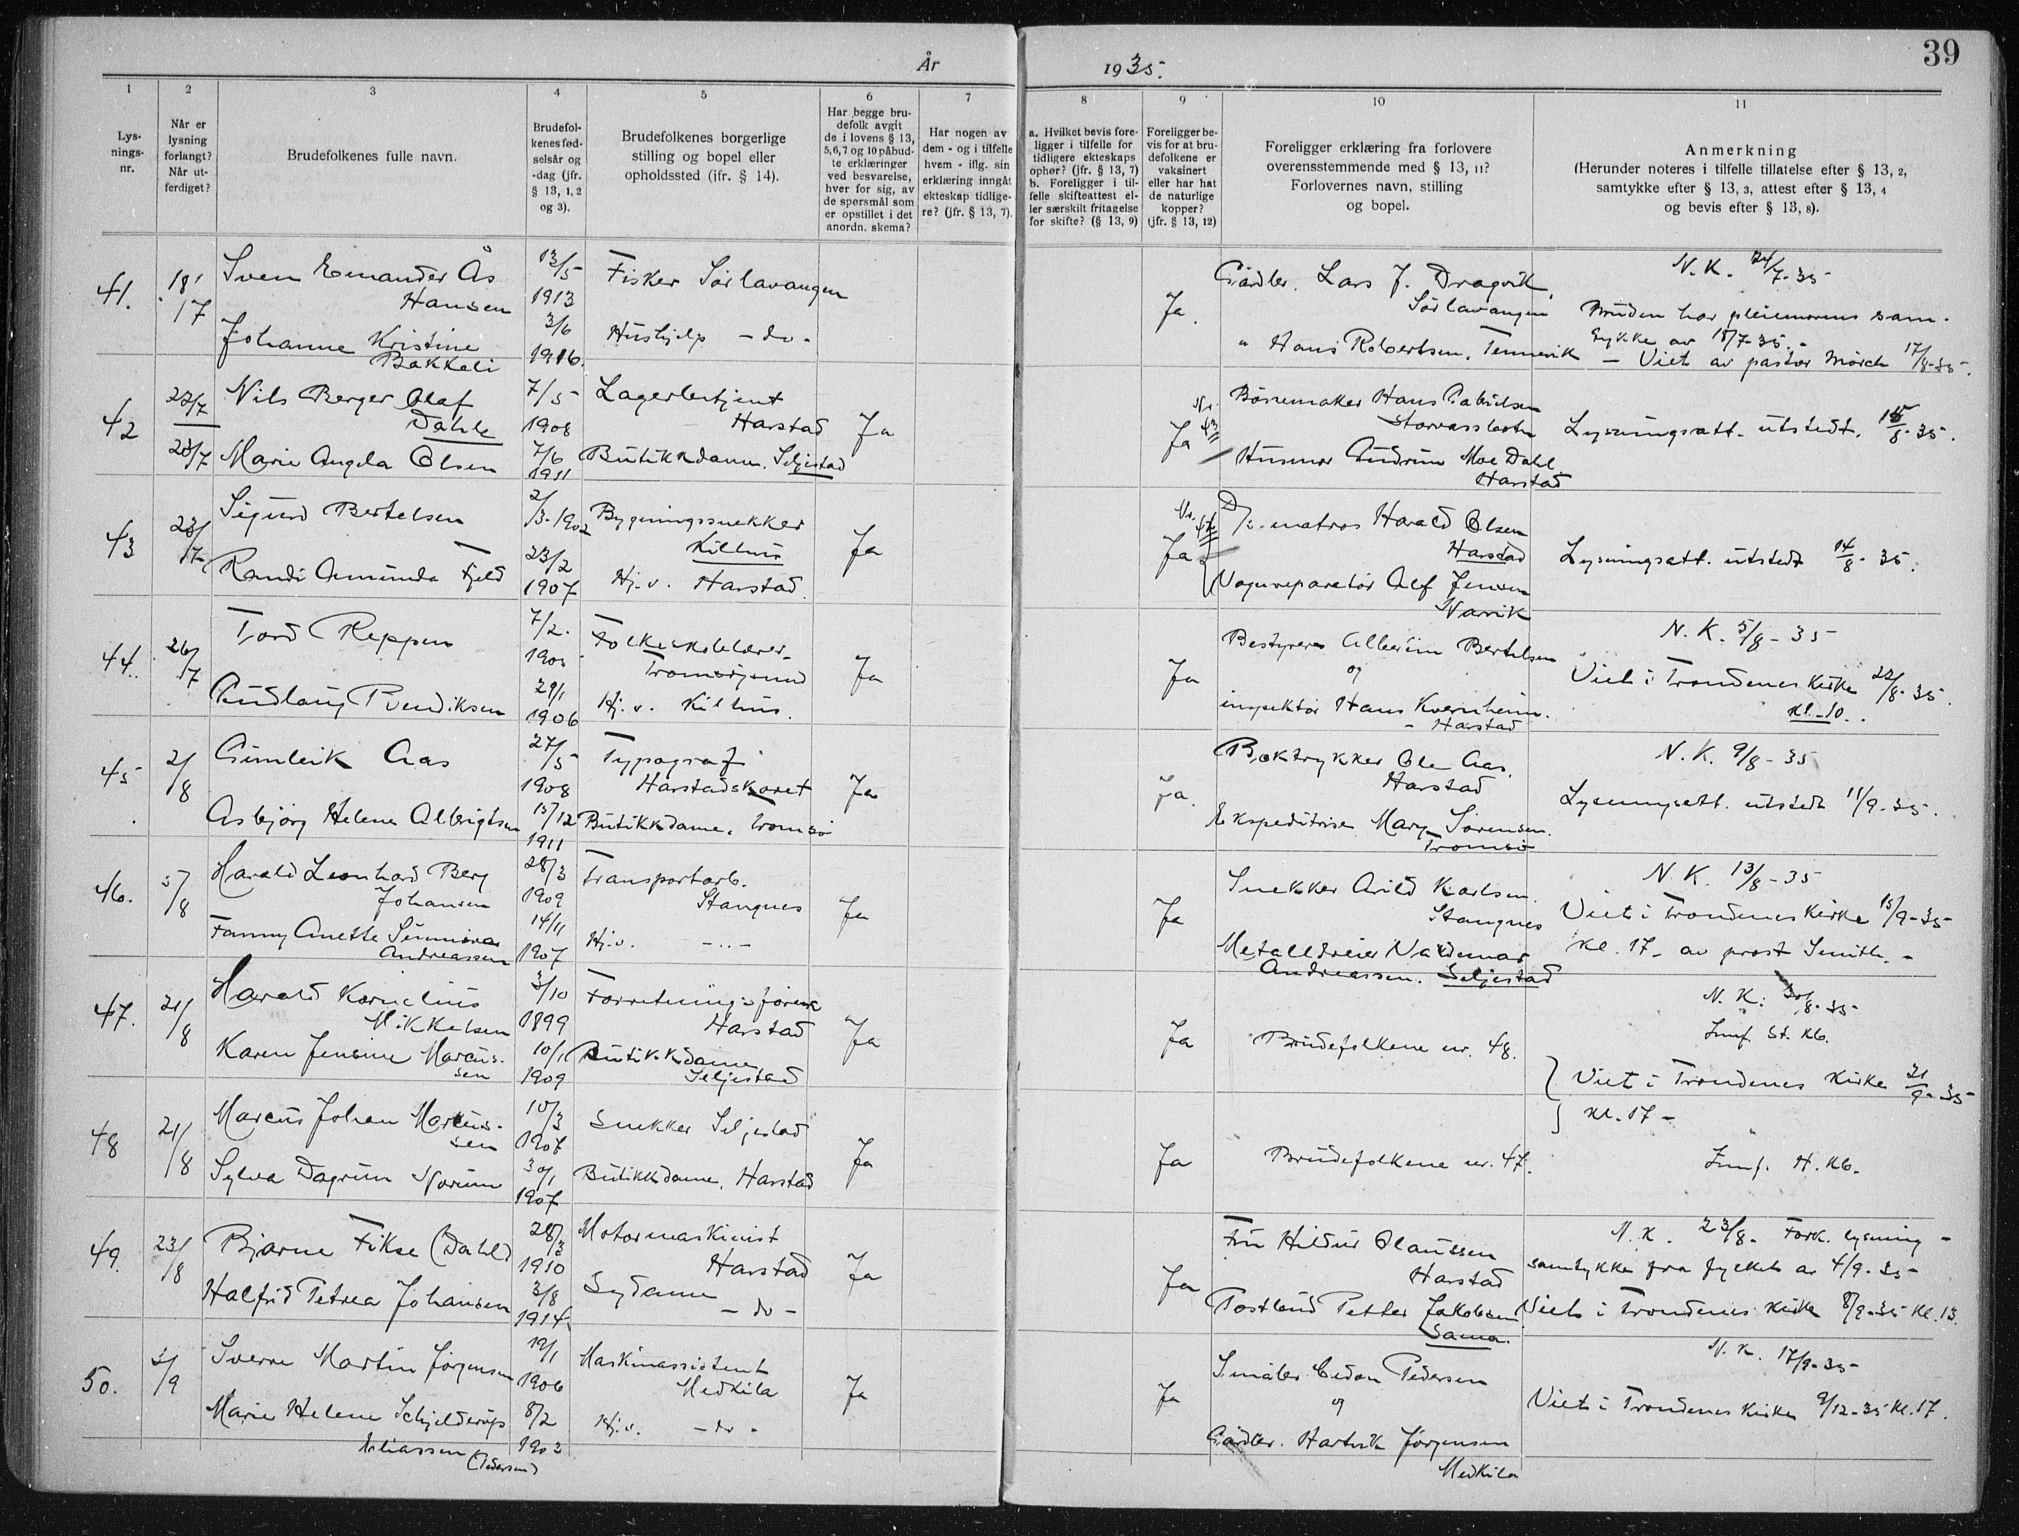 39
År 1935.
1 2 3 4 5 6 7 8 9 10 11
Lys-
nings-
nr.
Når er
lysning
forlangt?
Når ut-
ferdiget?
Brudefolkenes fulle navn.
Brudefol-
kenes fød-
selsår og
-dag (jfr.
§ 13, 1, 2
og 3).
Brudefolkenes borgerlige
stilling og bopel eller
opholdssted (jfr. § 14).
Har begge bru-
defolk avgit
de i lovens § 13,
5,6,7 og 10 påbud-
te erklæringer
ved besvarelse,
hver for sig, av
de spørsmål som
er opstillet i det
anordn. skema?
Har nogen av
dem - og i tilfelle
hvem - iflg. sin
erklæring inngåt
ekteskap tidlige-
re? (jfr. § 13, 7).
a. Hvilket bevis fore-
ligger i tilfelle for
tidligere ekteskaps
ophør? (jfr. § 13, 7)
b. Foreligger i til-
felle skifteattest el-
ler særskilt fritagelse
for skifte? (§ 13, 9)
Foreligger be-
vis for at bru-
defolkene er
vaksinert
eller har hat
de naturlige
kopper?
(jfr. § 13, 12)
Foreligger erklæring fra forlovere
overensstemmende med § 13, 11?
Forlovernes navn, stilling
og bopel.
Anmerkning
(Herunder noteres i tilfelle tillatelse efter § 13, 2,
samtykke efter § 13, 3, attest efter § 13, 4
og bevis efter § 13, 8).
41. 18/7 Sven Emander Ås
Hansen
13/5
1913
Fisker Sørlavangen
Johanne Kristine
Bakkeli
3/6
1916.
Hushjelp - do -
Ja.
Gårdbr. Lars J. Dragvik,
Sørlavangen
" Hans Robertsen, Tennevik
N. K. 24/7-35
Bruden har pleiemorens sam-
tykke av 18/7-35.
- Viet av pastor Mörch 17/8-35.
42 22/7
23/7
Nils Berger Olaf
Dahle
7/5
1908
Lagerbetjent
Harstad
Marie Angela Olsen
7/6
1911
Butikkdame. Seljestad
Ja
Ja
Børsemaker Hans
Husmor Gudrun Moe Dahl
Harstad
Lysningsatt. utstedt. 15/8-35.
43 23/7 Sigurd Bertelsen
2/3-1902
Bygningssnekker
Kilhus
Randi Amunda Fjeld
23/2
1907
Hj.v. Harstad.
Ja
Ja
D/s. matros Harald Olsen
Harstad
Vognreparatør Alf Jensen
Narvik
Lysningsatt. utstedt 14/8-35.
44. 26/7 Tord Reppen
7/2.
1905
Folkeskolelærer
Tromsøysund
Gudlaug Bendiksen
29/1
1906
Hj.v. Kilhus.
Ja
Ja
Bestyrer Albertin Bertelsen
og
inspektør Hans Kvernheim.
- Harstad
N. K. 5/8-35
Viet i Trondenes Kirke 22/8-35.
kl. 10.
45 2/8 Gunleik Aas
27/5
1908
Typograf
Harstadskaret
Asbjørg Helene Albrigtsen
15/12
1911
Butikkdame. Tromsø
Ja
Ja.
Boktrykker Ole Aas.
Harstad
Ekspeditrise Mary Sørensen.
Tromsø
N. K. 9/8-35
Lysningsatt. utstedt 11/9-35.
46. 5/8 Harald Leonhard Berg
Johansen
28/3
1909
Transportarb.
Stangnes
Fanny Anette Sunniva
Andreassen
14/11
1907
Hj.v. - .. -
Ja
Ja
Snekker Arild Karlsen.
Stangnes
Metalldreier Valdemar
Andreassen. Seljestad
N. K. 13/8-35
Viet i Trondenes Kirke 15/9-35
Kl. 17 - av prost Smith. -
47. 21/8 Harald Kornelius
Mikkelsen
3/10
1899
Forretningsfører
Harstad
Karen Jensine Marcus-
sen
10/1
1909
Butikkdame
Seljestad
Ja
Ja
Brudefolkene nr. 48.
N. K. 30/8-35
Innf. St. kb.
Viet i Trondenes Kirke 21/9-35
kl. 17 -
48 21/8 Marcus Johan Marcus-
sen
10/3
Snekker Seljestad
Sylva Dagrun Norum
30/1
1907
Butikkdame, Harstad
Ja
Ja
Brudefolkene nr. 47.
Innf. H. kb.
49. 23/8 Bjarne Fikse (Dahl)
28/3
1910
Motormaskinist
Harstad
Halfrid Petrea Johansen
3/8
1914.
Sydame
- do -
Ja
Ja
Fru Hildur Claussen
Harstad
Postbud Petter Jakobsen
Sama.
N. K. 23/8. Fork. lysning -
samtykke fra fylket av 4/9-35
Viet i Trondenes Kirke 8/9-35 kl. 13.
50. 3/9 Sverre Martin Jørgensen
19/1
1906
Maskinassistent
Medkila
Marie Helene Schjelderup
Eliassen (Pedersen)
8/2
1903
Hj.v. - do -
Ja
Ja
Småbr. Pedersen
og
Gårdbr. Hartvik Jørgensen
Medkila
N. K. 17/9-35
Viet i Trondenes Kirke 9/12-35 kl. 17.